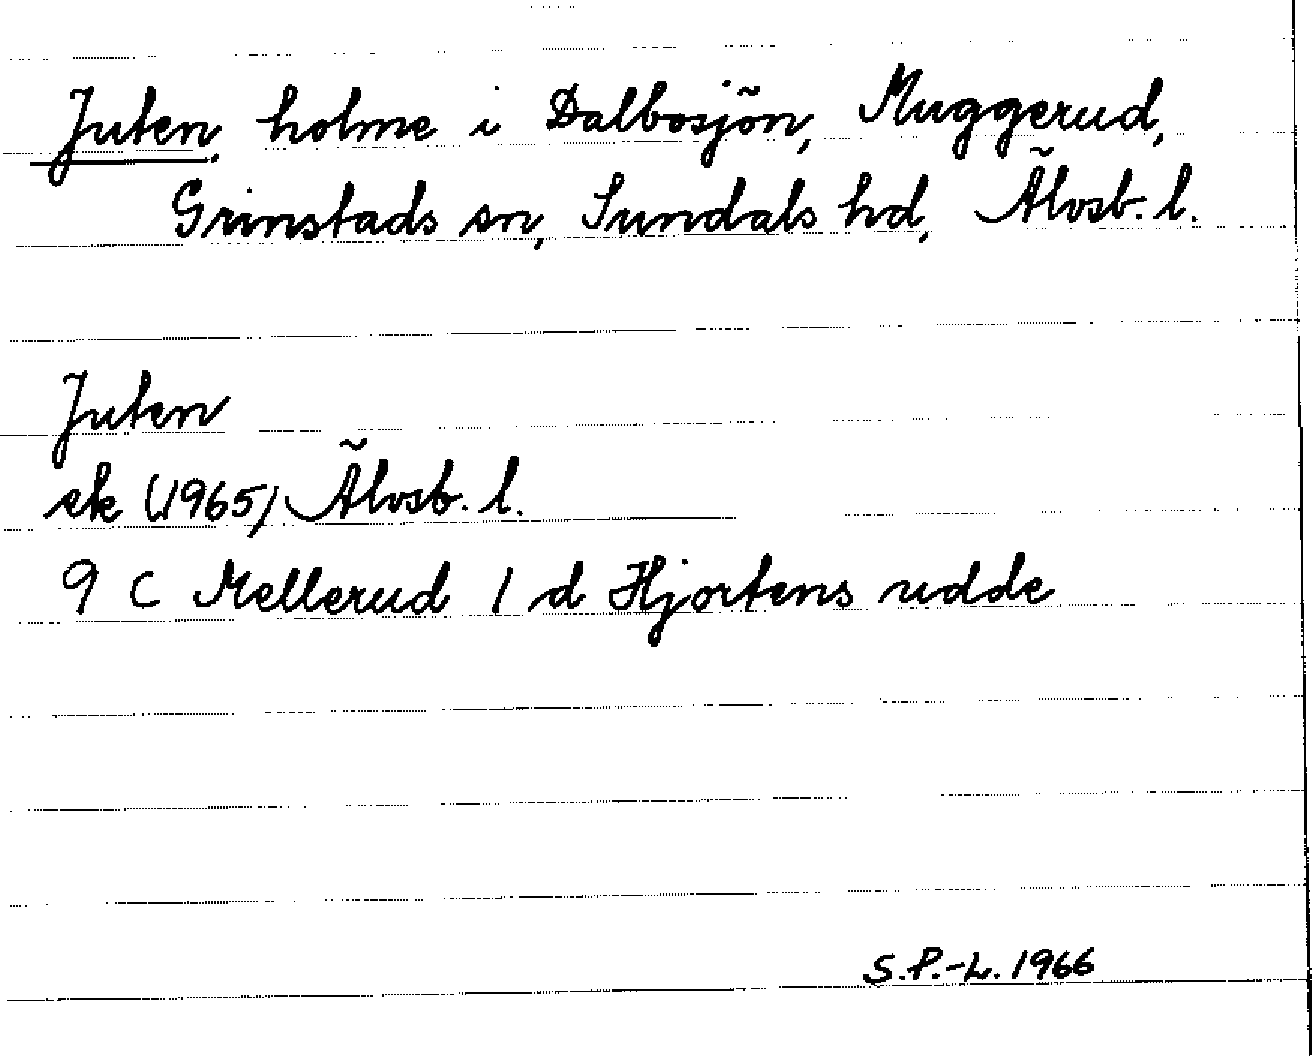 Juten, holme i Dalbosjön, Muggerud,
Grinstads sn, Sundals hd, Älvsb. l.
Juten
ek (1965) Älvsb. l.
9 C Mellerud 1 d Hjortens udde
S.P.-L. 1966